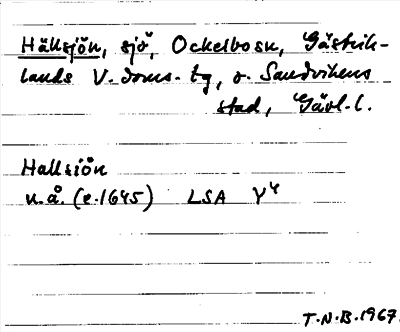 Hällsjön, sjö, Ockelbo sn, Gästrik-
lands V. doms. tg, o. Sandvikens
stad, Gävl. l.
Hallsiön
u.å. (e. 1645) LSA Y4
T.N.B. 1967.